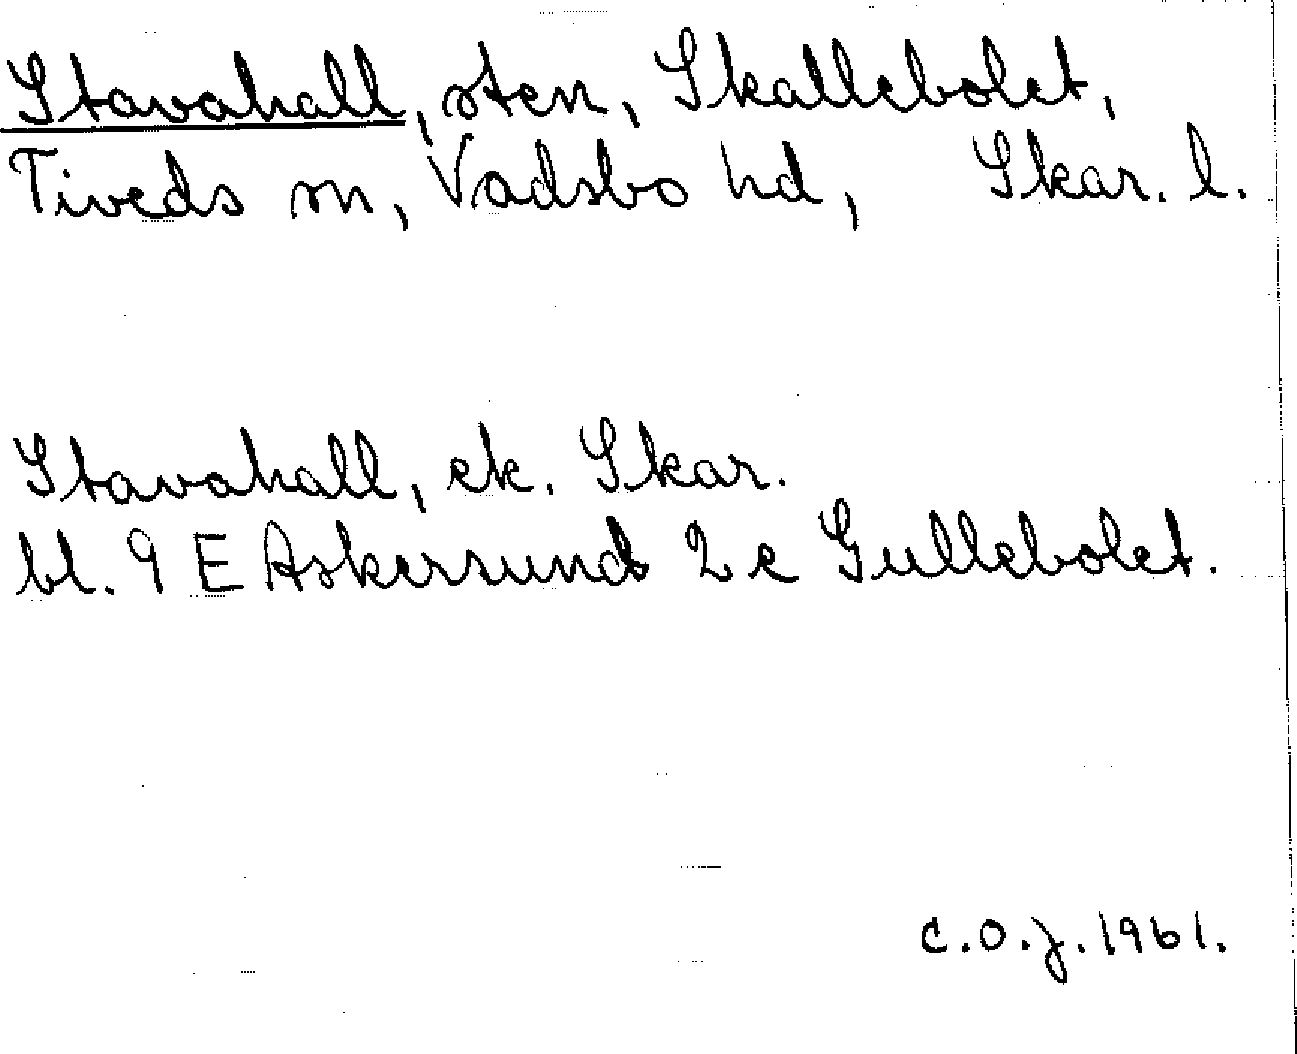 Stavahall, sten, Skallebolet,
Tiveds sn, Vadsbo hd, Skar. l.
Stavahall, ek. Skar.
bl. 9 E Askersund 2 e Gullebolet.
C.O.J. 1961.